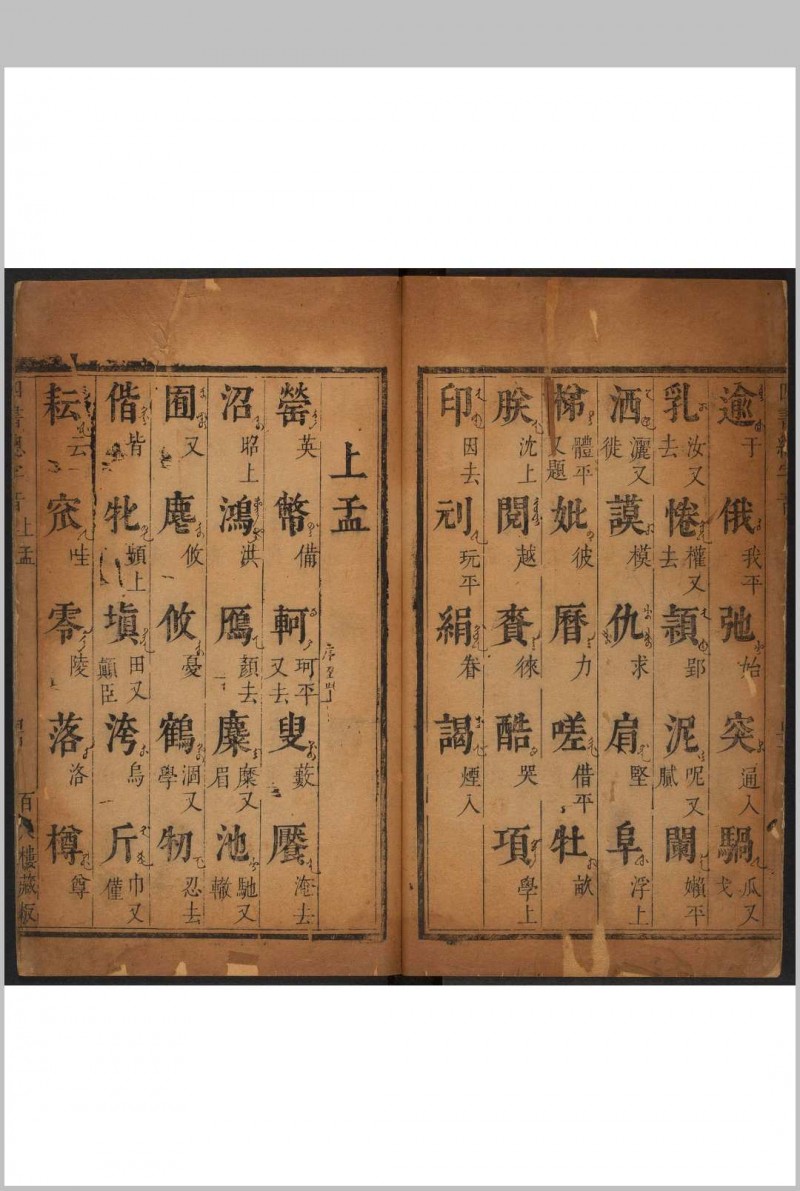 逾于 俄我平 弛始 突通入 騧瓜又戈
乳汝又去 惓權又去 頴郢 泥呢又膩 闌嬾平
洒灑又徙 謨模 仇求 肩堅 阜浮上
梯體平又題 妣彼 曆力 嗟借平 牡畝
朕沈上 閱越 賚徠 酷哭 項學上
印因去 刓玩平 絹眷 謁煙入
上孟
罃英 幣備 軻珂平又去 叟藪 饜淹去
沼昭上 鴻洪 鴈顏去 麋糜又眉 池馳又轍
囿又 麀攸 攸憂 鶴涸又學 牣忍去
偕皆 牝顊上 填田又顛臣 洿烏 斤巾又僅
耘云 零陵 落洛 樽尊
上孟
樓藏板